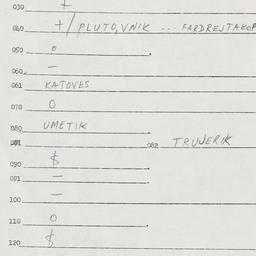 030 +
040 +/ PLUTO, VNIK ... FARDREJTAKOP
050 o
060 —
061 KATOVES
070 O
080 UMETIK
081 082 TRUWERIK
090 $
091 —
100 —
110 o
120 $